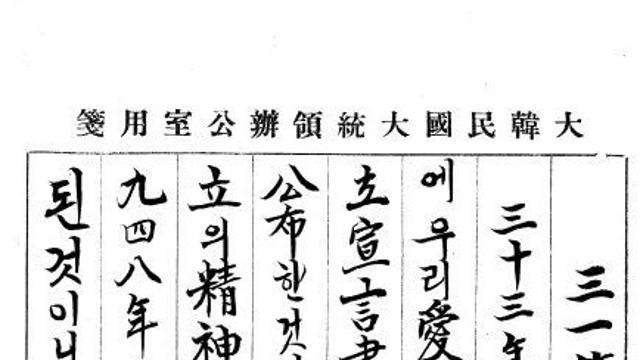 大韓民國大統領辦公室用箋
三一
三十三年
에우리愛
立宣言書
公布한것
立의精神
九四八年
된것이니